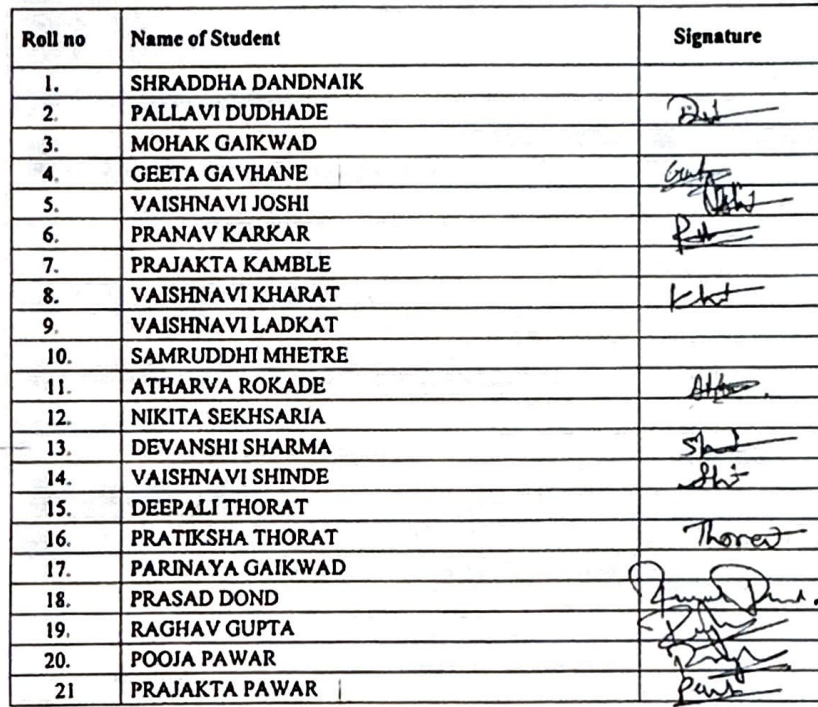 Roll no Name of Student Signature
1. SHRADDHA DANDNAIK
2. PALLAVI DUDHADE
3. MOHAK GAIKWAD
4. GEETA GAVHANE
5. VAISHNAVI JOSHI
6. PRANAV KARKAR
7. PRAJAKTA KAMBLE
8. VAISHNAVI KHARAT
9. VAISHNAVI LADKAT
10. SAMRUDDHI MHETRE
11. ATHARVA ROKADE
12. NIKITA SEKHSARIA
13. DEVANSHI SHARMA
14. VAISHNAVI SHINDE
15. DEEPALI THORAT
16. PRATIKSHA THORAT Thorat
17. PARINAYA GAIKWAD
18. PRASAD DOND
19. RAGHAV GUPTA
20. POOJA PAWAR
21 PRAJAKTA PAWAR